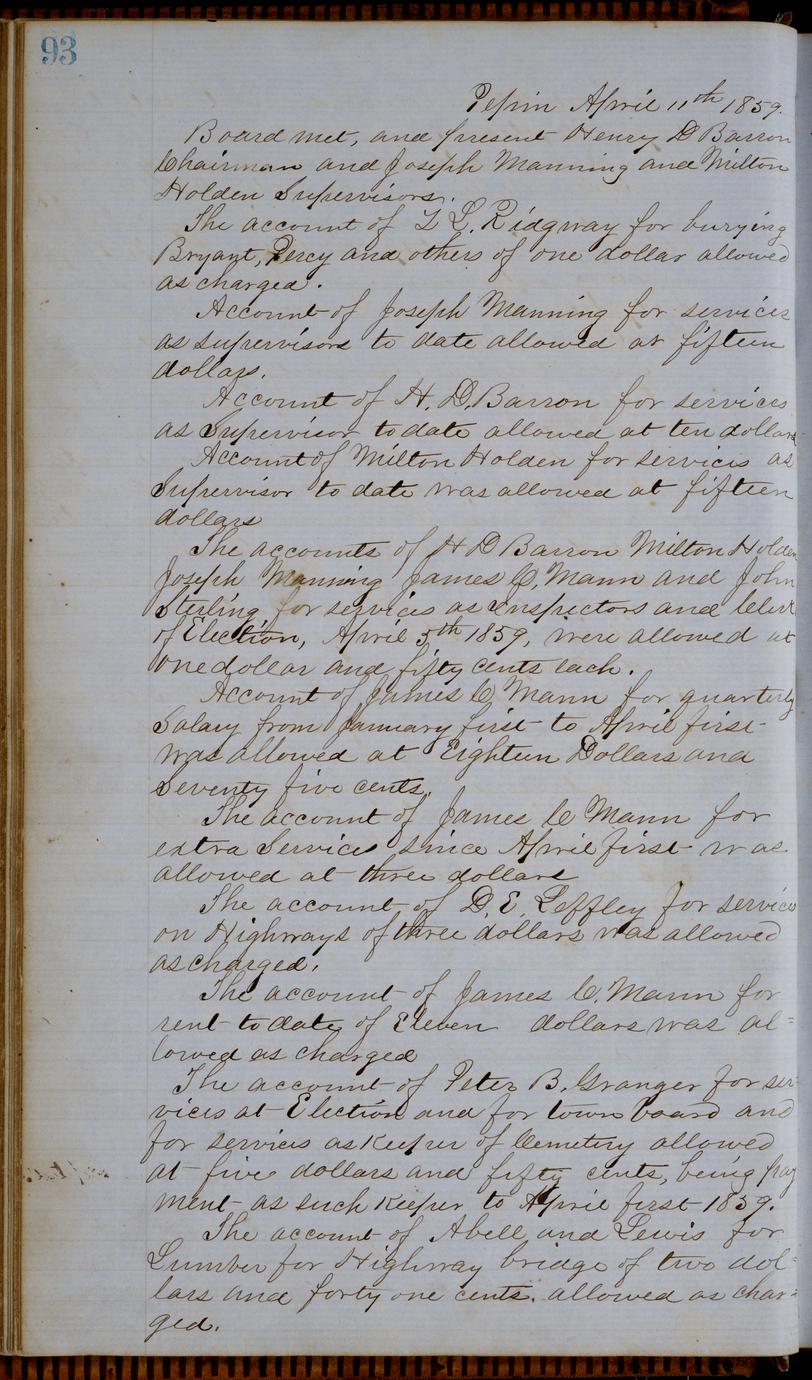 93
Pepin April 11th 1859.
Board met, and present Henry D Barron
Chairman and Joseph Manning and Milton
Holden Supervisors.
The account of L. Ridgway for burying
Bryant, Piercy and others of one dollar allowed
as charged.
Account of Joseph Manning for services
as supervisors to date allowed at fifteen
dollars.
Account of H. D. Barron for services
as Supervisor to date allowed at ten dollars
Account of Milton Holden for services as
Supervisor to date was allowed at fifteen
dollars
The accounts of H D Barron Milton Holden
Joseph Manning James C. Mann and John
Sterling for services as Inspectors and Clerk
of Election, April 5th 1859, were allowed at
one dollar and fifty cents each.
Account of James C Mann for quarterly
Salary from January first to April first
was allowed at Eighteen Dollars and
Seventy five cents.
The account of James C Mann for
extra Services since April first was
allowed at three dollars
The account of D. E. Leffley for services
on Highways of three dollars was allowed
as charged.
The account of James C. Mann for
rent to date of Eleven dollars was al=
lowed as charged
The account of Peter B. Granger for ser-
vices at Election and for town board and
for services as Keeper of Cemetery allowed
at five dollars and fifty cents, being pay
ment as such Keeper to April first 1859.
The account of Abell and Lewis for
Lumber for Highway bridge of two dol=
lars and forty one cents. allowed as char=
ged.